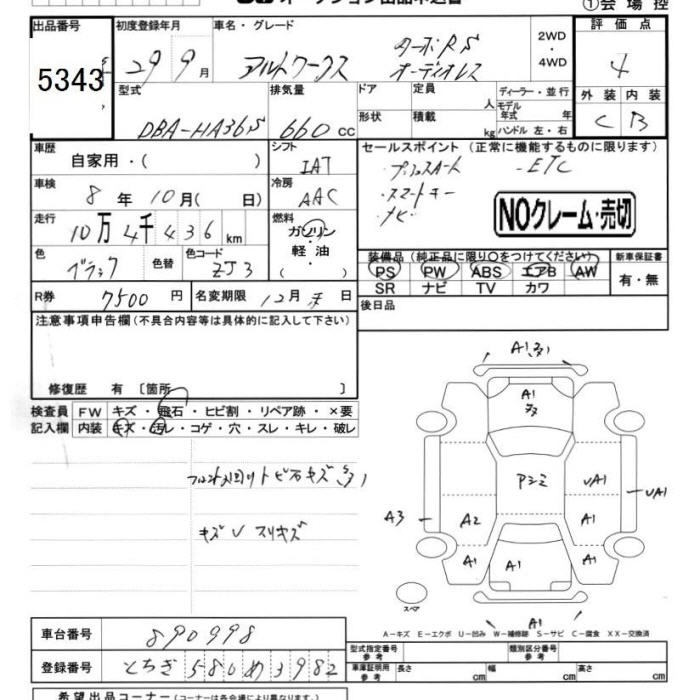 オークション出品申込書
①会場控
出品番号 5343
初度登録年月 29 9月
車名・グレード アルトワークス ターボRS オーディオレス
2WD・4WD
評価点 4
外装 C 内装 B
型式 DBA-HA36S
排気量 660 cc
ドア 形状
定員 人 積載 kg
ディーラー・並行
モデル年式 年式
ハンドル 左・右
車歴 自家用・( )
シフト IAT
車検 8年 10月( 日)
冷房 AAC
走行 10万4千436km
燃料 ガソリン・軽油・( )
色 ブラック 色替 色コード ZJ3
R券 7500円 名変期限 12月末日
セールスポイント (正常に機能するものに限ります)
・プッシュスタート -ETC
・スマートキー
・ナビ
NOクレーム・売切
装備品 (純正品に限り○をつけてください)
PS PW ABS エアB AW
SR ナビ TV カワ
新車保証書 有・無
後日品
注意事項申告欄 (不具合内容等は具体的に記入して下さい)
修復歴 有 [箇所 ]
検査員記入欄
FW キズ・飛石・ヒビ割・リペア跡・×要
内装 キズ・汚レ・コゲ・穴・スレ・キレ・破レ
フロント廻り トビ石キズ
キズ U スリキズ
A1
A1
Pシミ
UA1
UA1
A3
A2
A1
A1
A1
A1
A1
スペア
A-キズ E-エクボ U-凹み W-補修跡 S-サビ C-腐食 XX-交換済
車台番号 890998
登録番号 とちぎ 580 め 3982
型式指定番号 参考
類別区分番号 参考
車庫証明用 参考 長さ cm 幅 cm 高さ cm
希望出品コーナー (コーナーは各会場により異なります。)